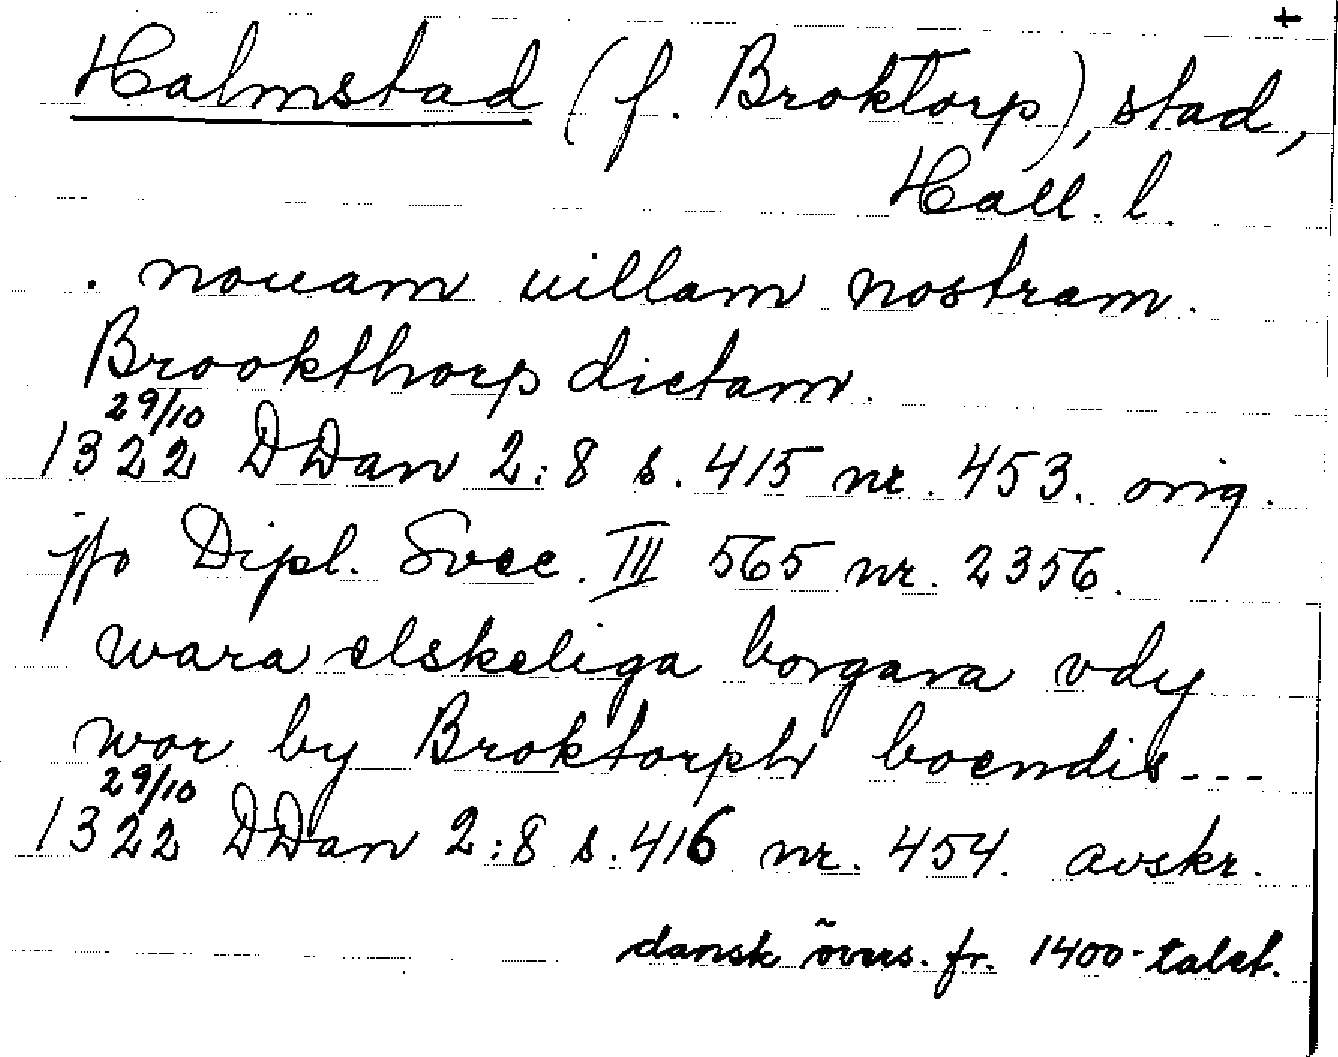 +
Halmstad (f. Broktorp), stad,
Hall. l.
. nouam uillam nostram.
Brookthorp dictam.
29/10
1322 DDan 2:8 s. 415 nr. 453. orig.
jfo Dipl. Svec. III 565 nr. 2356.
wara elskeliga borgara vdy
wor by Broktorph boendis---
29/10
1322 DDan 2:8 s. 416 nr. 454. avskr.
dansk övers. fr. 1400-talet.